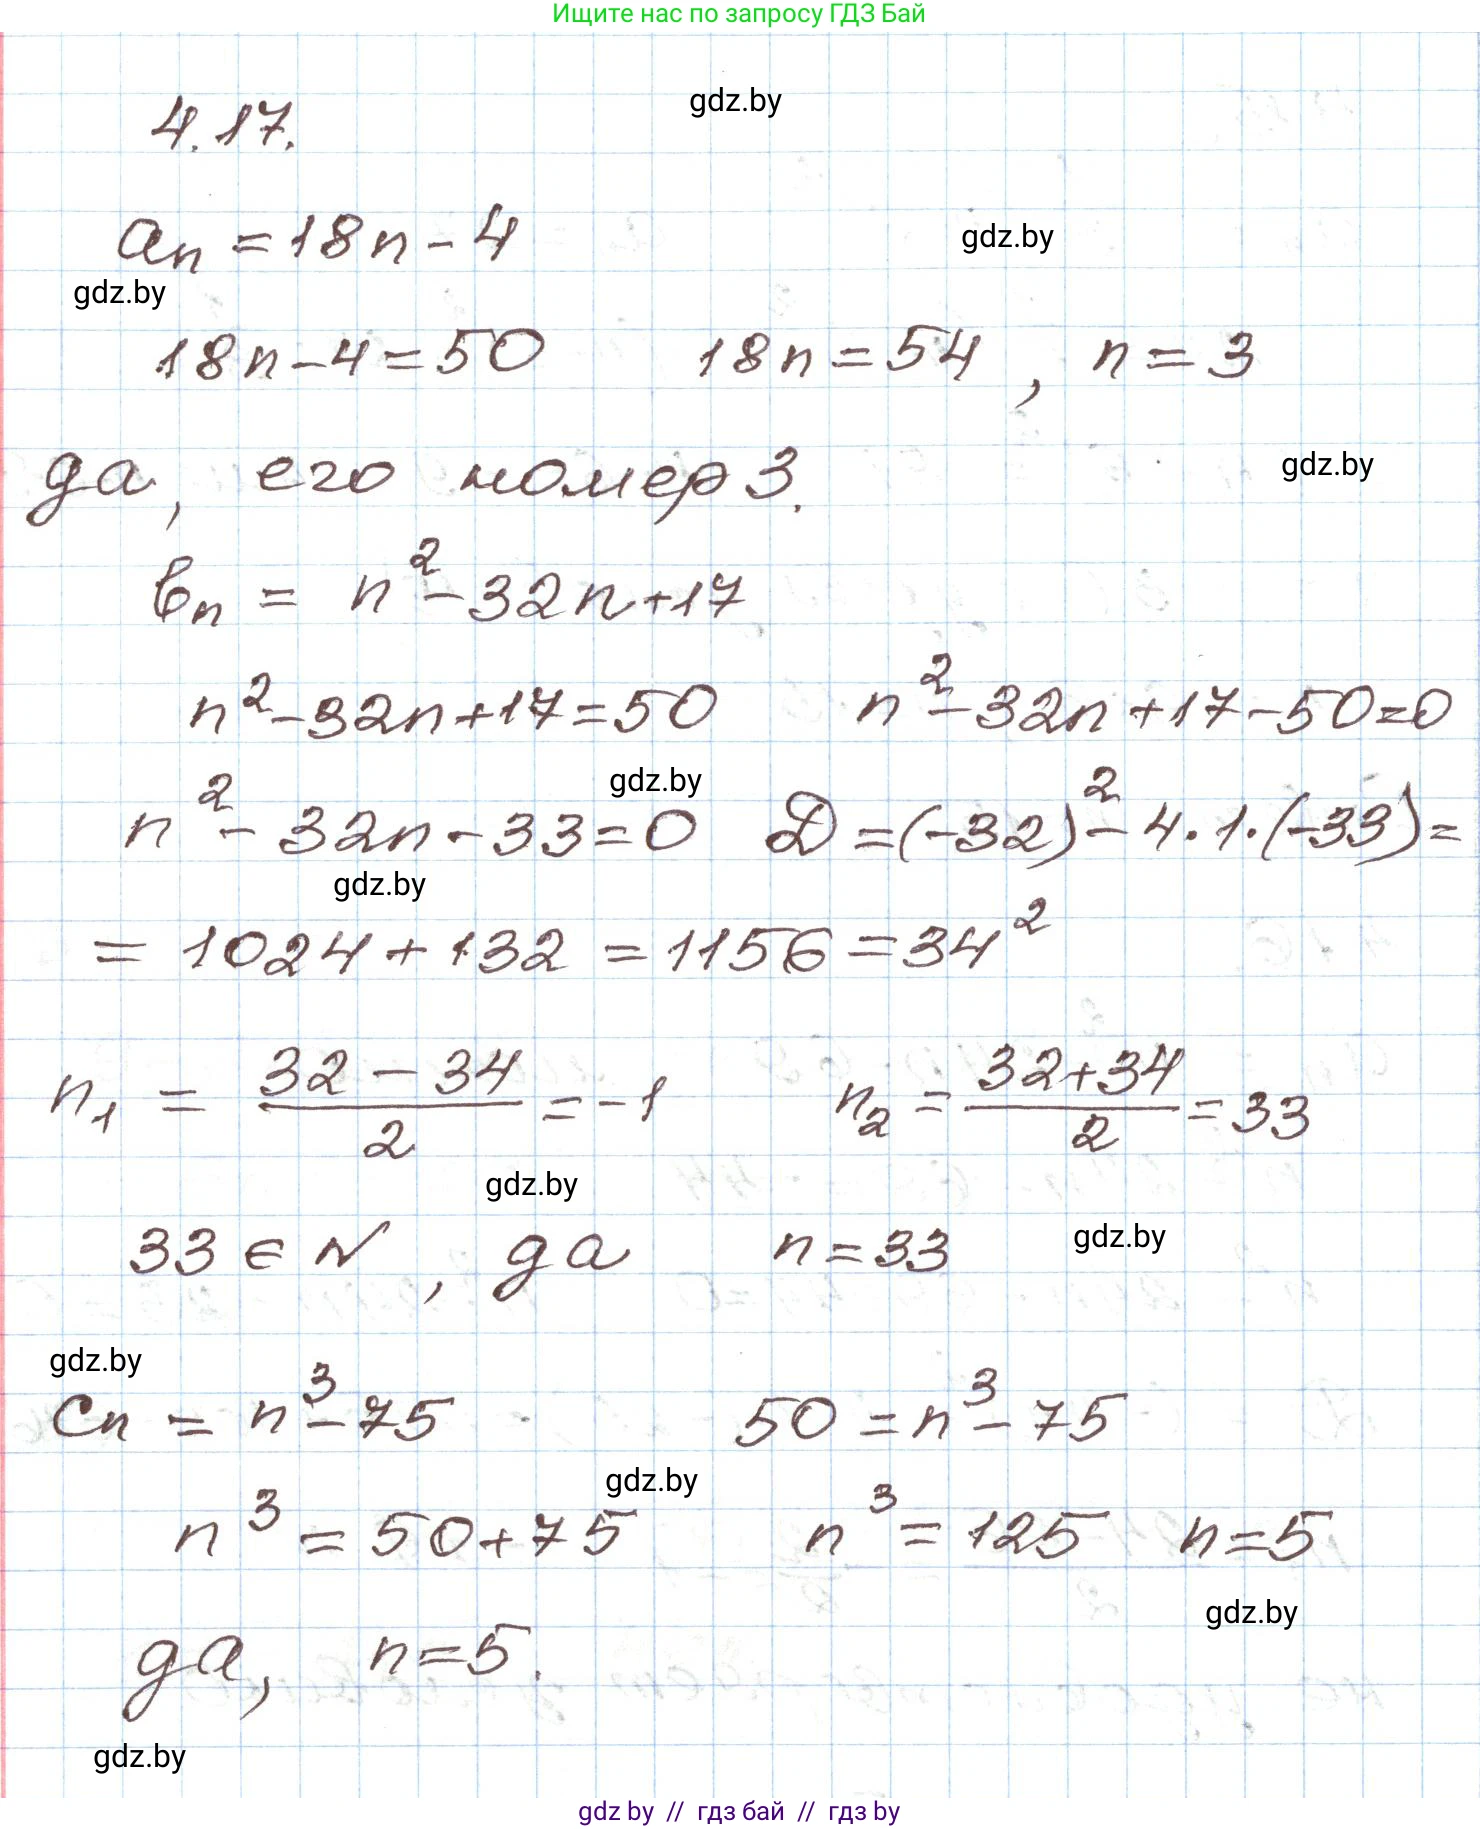 Ищите нас по запросу ГДЗ Бай
gdz.by
4.17.
aₙ = 18n - 4
gdz.by
gdz.by
18n - 4 = 50 18n = 54 , n = 3
да, его номер 3.
gdz.by
вₙ = n² - 32n + 17
n² - 32n + 17 = 50 n² - 32n + 17 - 50 = 0
gdz.by
n² - 32n - 33 = 0 D = (-32)² - 4 · 1 · (-33) =
gdz.by
= 1024 + 132 = 1156 = 34²
n₁ = (32 - 34)/2 = -1 n₂ = (32 + 34)/2 = 33
gdz.by
33 ∈ N , да n = 33
gdz.by
gdz.by
Cn = n³ - 75 50 = n³ - 75
gdz.by
n³ = 50 + 75 n³ = 125 n = 5
gdz.by
да, n = 5.
gdz.by
gdz by // гдз бай // гдз by